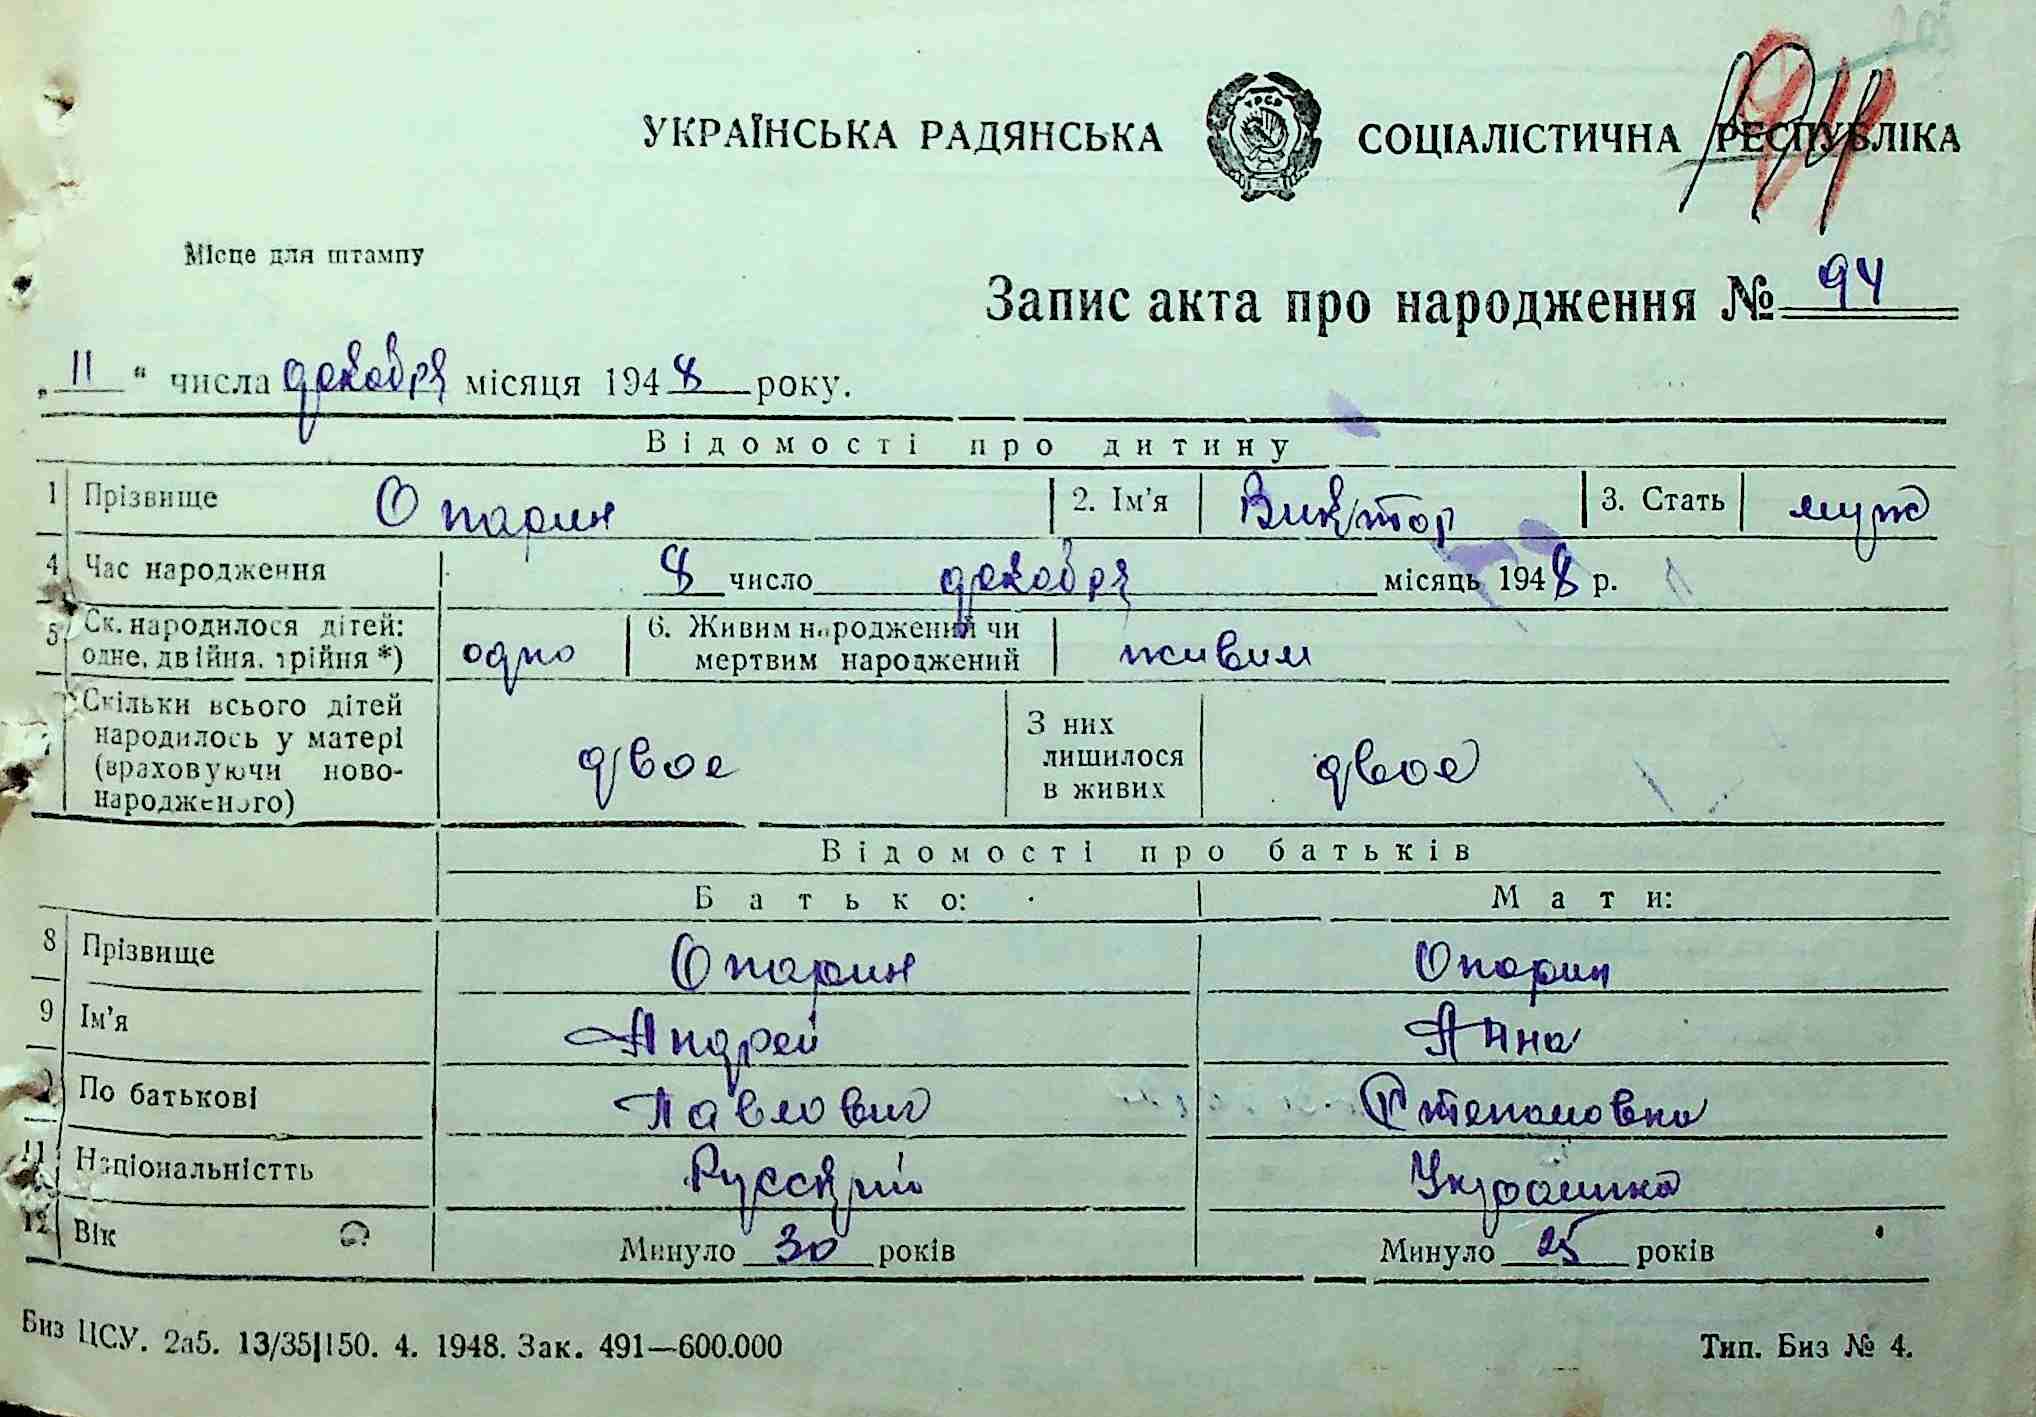 УКРАЇНСЬКА РАДЯНСЬКА СОЦІАЛІСТИЧНА РЕСПУБЛІКА
УРСР
Місце для штампу
Запис акта про народження № 94
„11“ числа декабря місяця 1948 року.
Відомості про дитину
1 Прізвище Опарин 2. Ім'я Виктор 3. Стать муж
4 Час народження 8 число декабря місяць 1948 р.
5 Ск. народилося дітей: одно 6. Живим народжений чи живим
одне, двійня, трійня *) мертвим народжений
7 Скільки всього дітей
народилось у матері двое З них лишилося в живих двое
(враховуючи ново-
народженого)
Відомості про батьків
Батько: Мати:
8 Прізвище Опарин Опарин
9 Ім'я Андрей Анна
10 По батькові Павлович Степановна
11 Національністть Русский Украинка
12 Вік Минуло 30 років Минуло 25 років
Биз ЦСУ. 2а5. 13/35|150. 4. 1948. Зак. 491—600.000 Тип. Биз № 4.